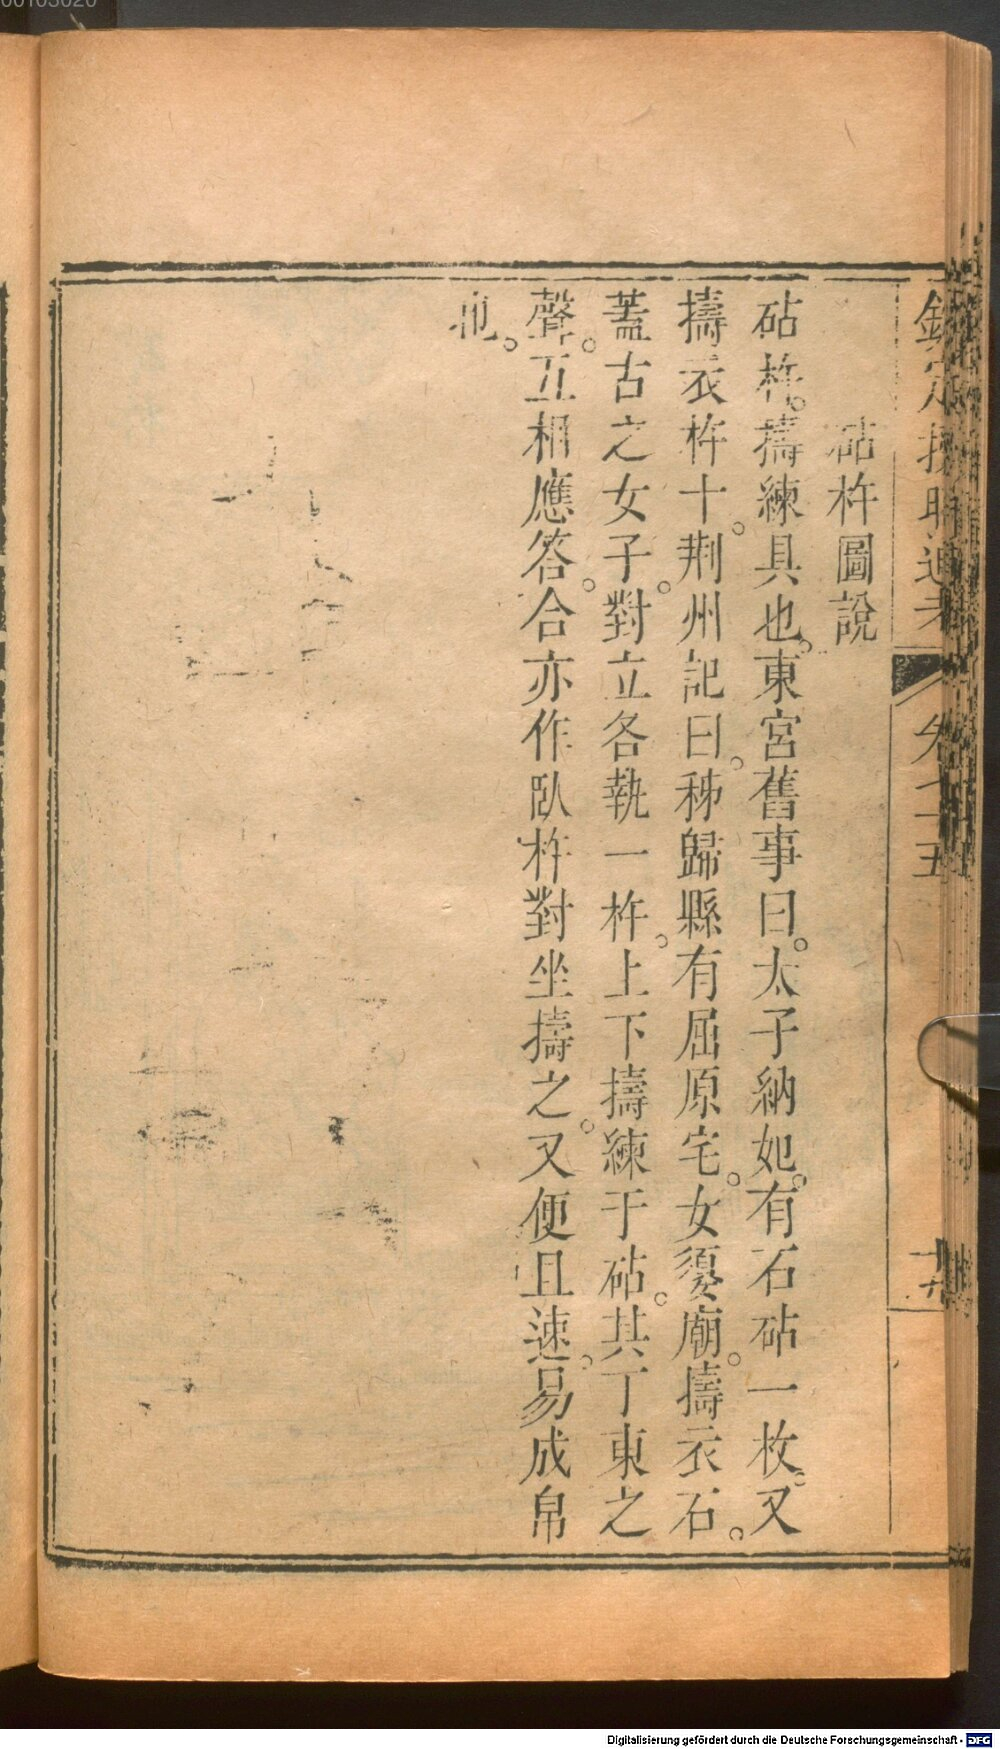 00103020
欽定授時通考 卷七十五
砧杵圖說
砧杵。擣練具也。東宮舊事曰。太子納妃。有石砧一枚。又
擣衣杵十。荆州記曰。秭歸縣有屈原宅。女嬃廟。擣衣石。
蓋古之女子。對立各執一杵。上下擣練于砧。其丁東之
聲。互相應答。合亦作臥杵對坐擣之。又便且速。易成帛
也。
Digitalisierung gefördert durch die Deutsche Forschungsgemeinschaft - DFG